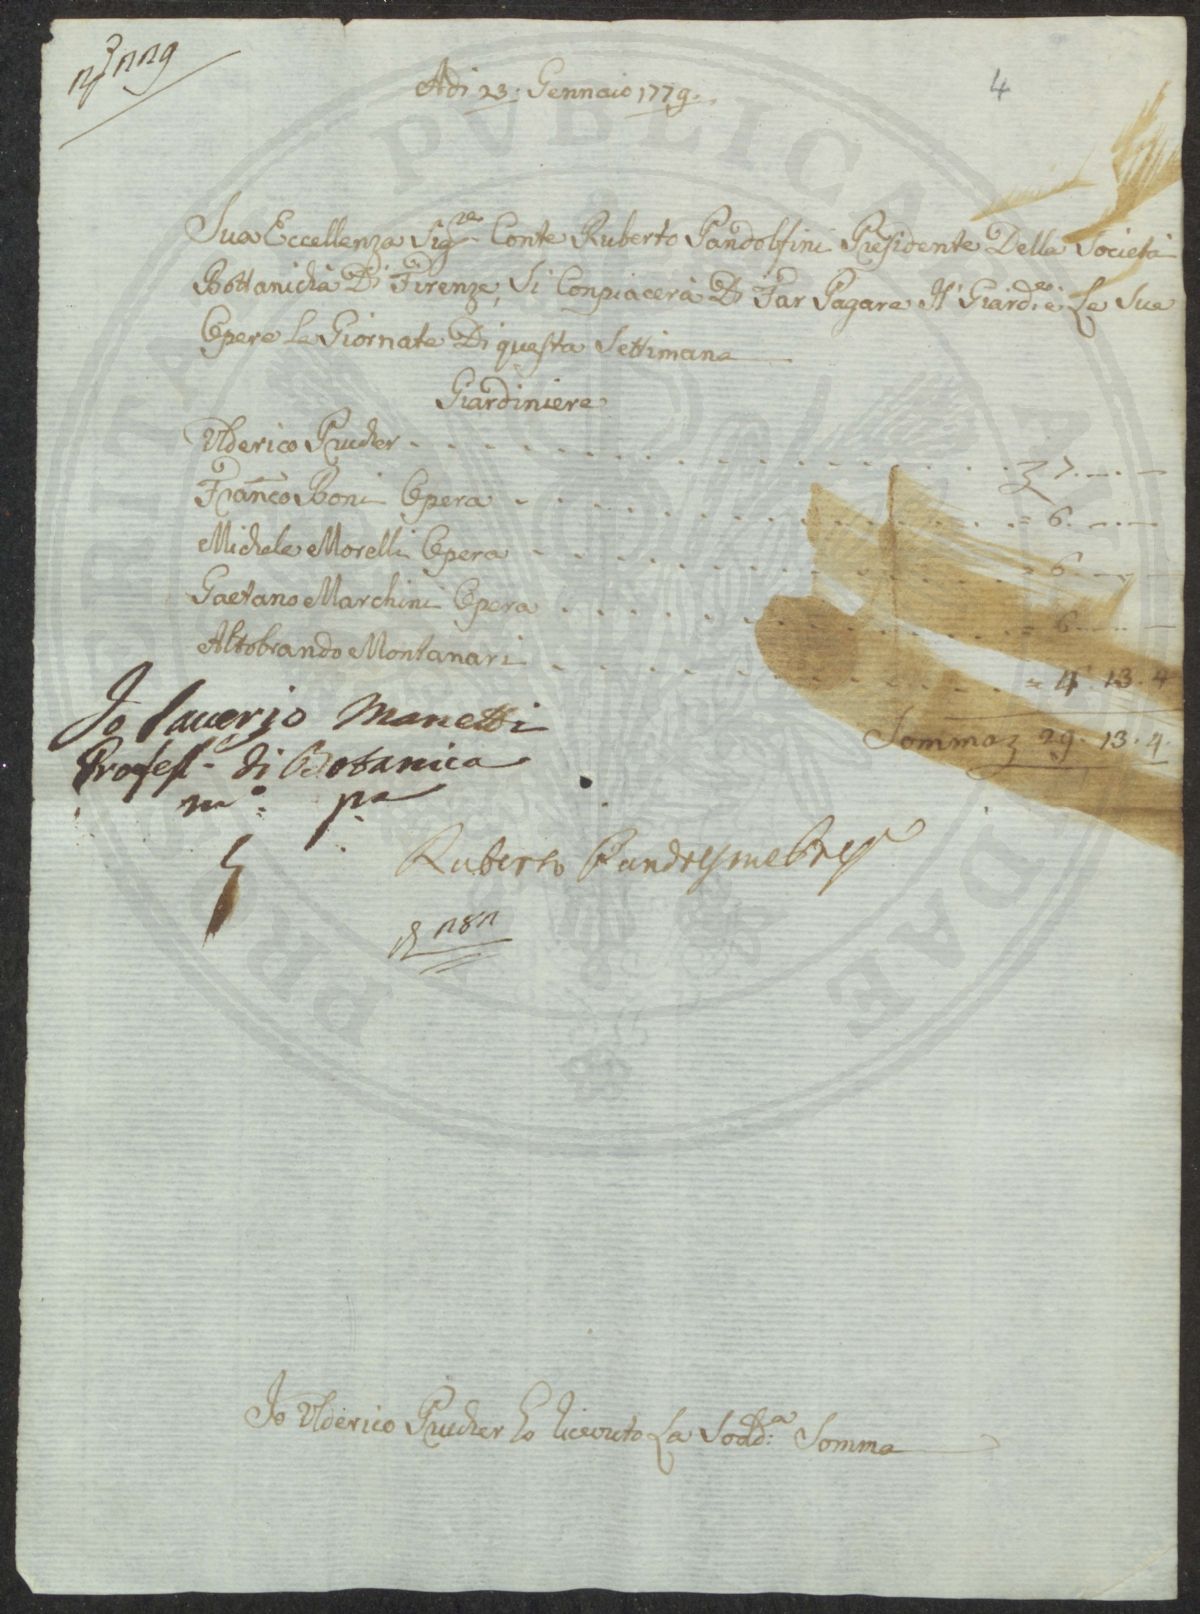 Adi 23. Gennaio 1779.
4
Sua Eccellenza Sigre Conte Ruberto Pandolfini Presidente Della Società
Bottanicha Di Firenze, Si Conpiacerà Di Far Pagare Il Giard.e e Le Sue
Opere Le Giornate Di questa Settimana
Giardiniere
Ulderico Prucher - - - 7. — . —
Franco Boni Opera - - - = 6. — . —
Michele Morelli Opera - - - = 6 — . —
Gaetano Marchini Opera - - - = 6 — . —
Altobrando Montanari - - - = 4. 13. 4
Somma 29. 13. 4.
Io Saverio Manetti
Profess. di Botanica
mo. pa
Ruberto
Io Ulderico Prucher ho ricevuto La Sodd.a Somma
PRO PVBLICAE